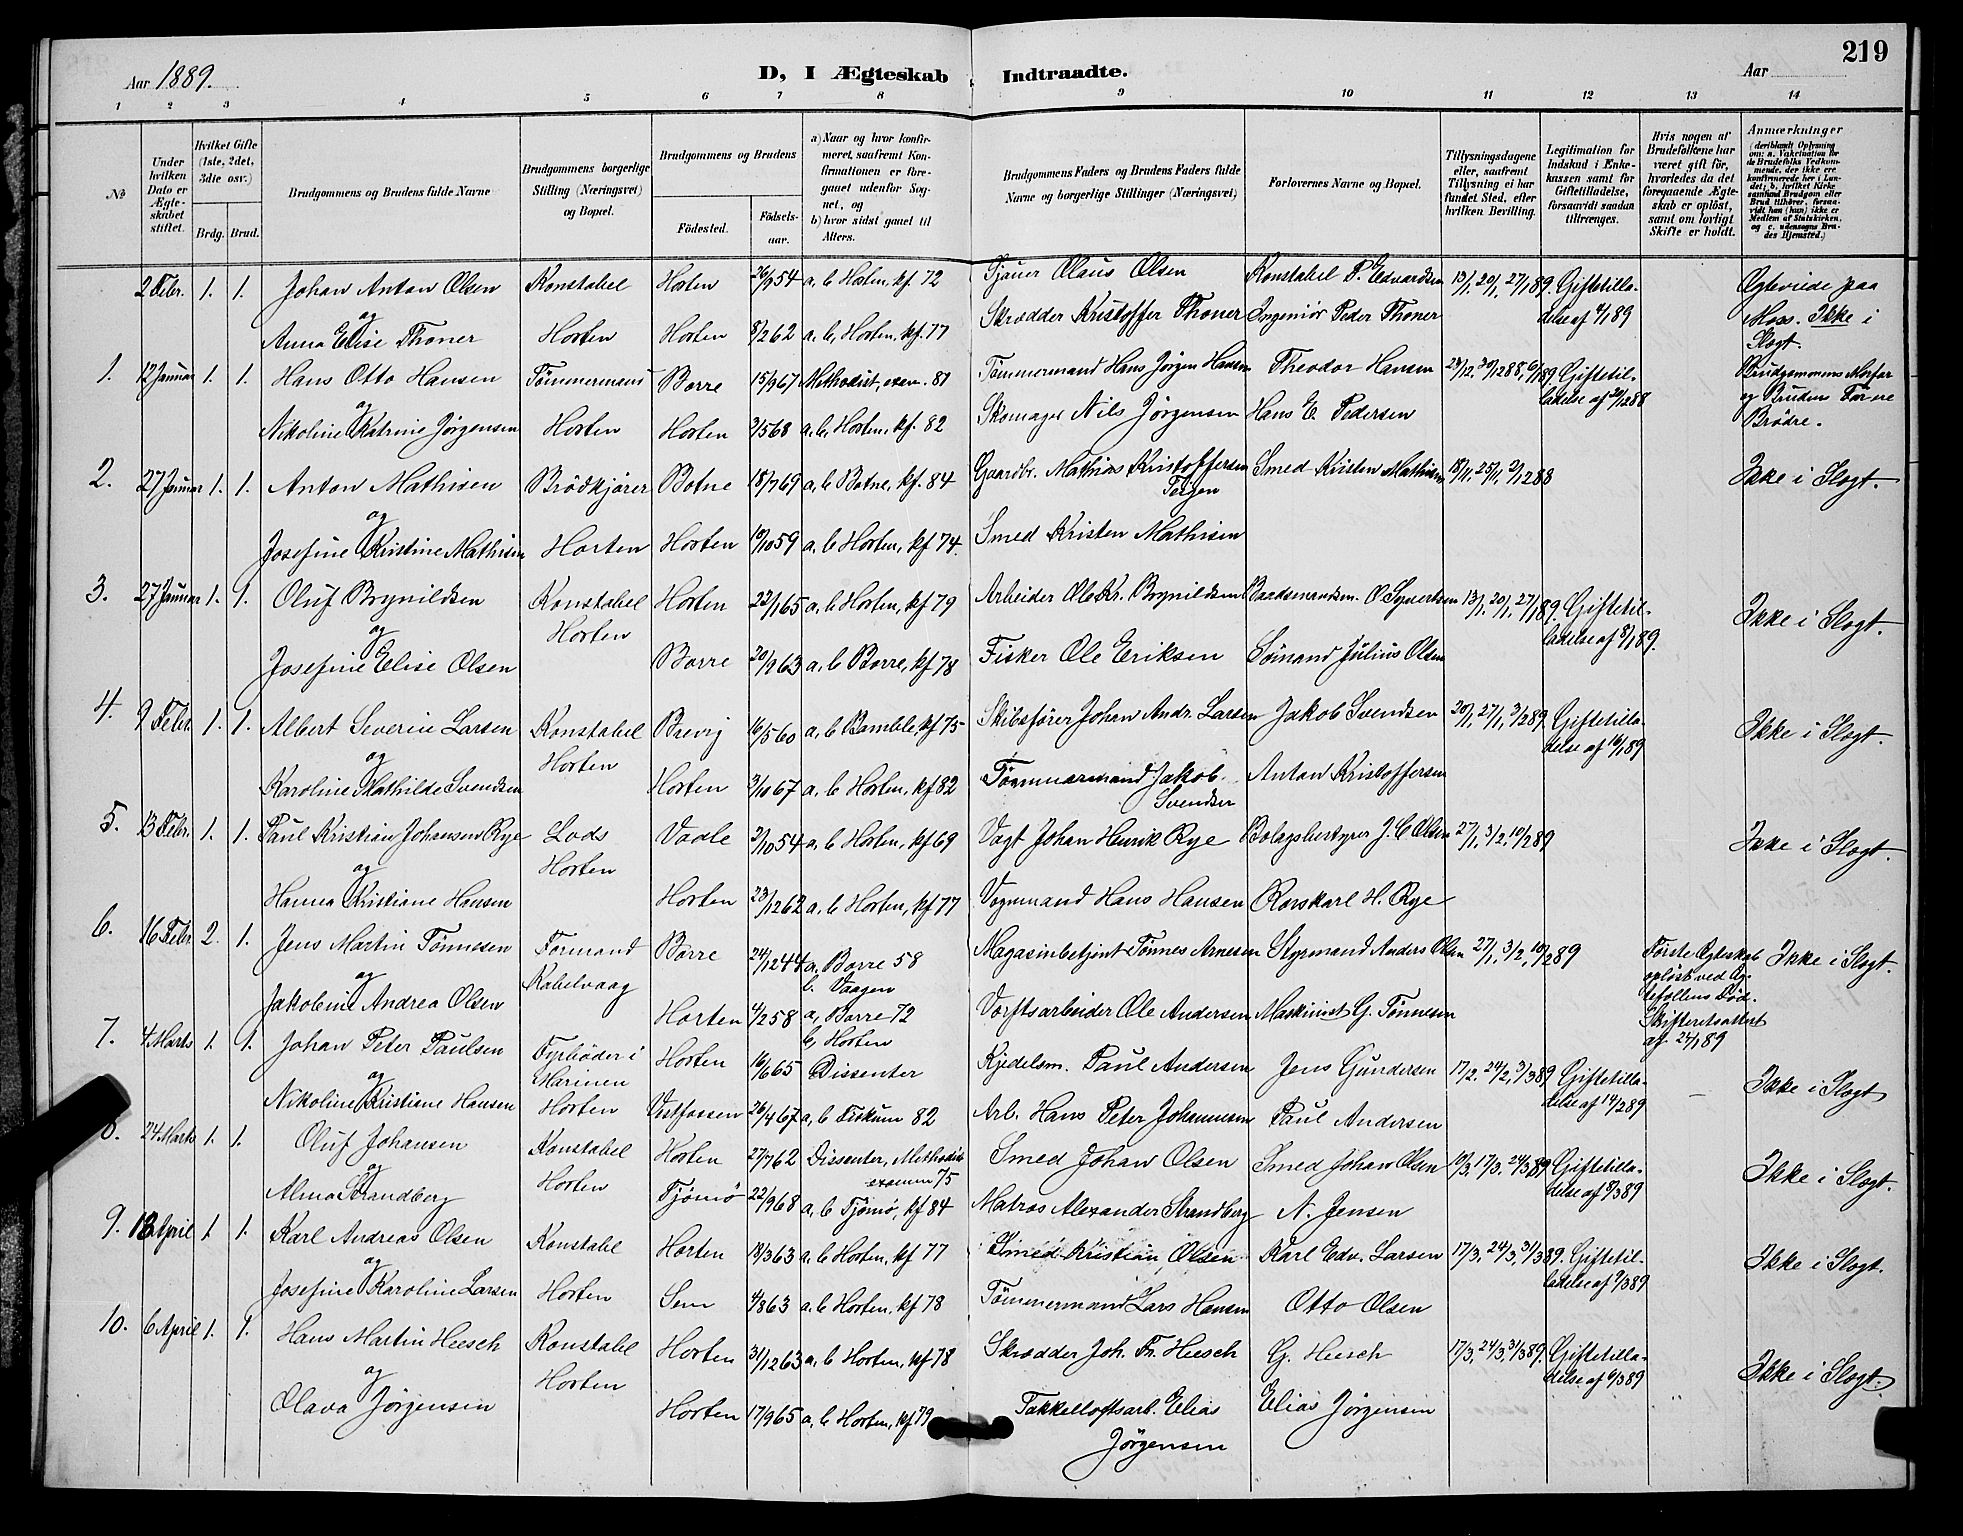 219
Aar 1889.
D, I Ægteskab Indtraadte.
Aar
1 2 3 4 5 6 7 8 9 10 11 12 13 14
No
Under hvilken Dato er Ægteskabet stiftet.
Hvilket Gifte (1ste, 2det, 3die osv.)
Brdg. Brud.
Brudgommens og Brudens fulde Navne
Brudgommens borgerlige Stilling (Næringsvei) og Bopæl.
Brudgommens og Brudens
Fødested.
Fødselsaar.
a) Naar og hvor konfirmeret, saafremt Konfirmationen er foregaaet udenfor Sognet, og
b) hvor sidst gaaet til Alters.
Brudgommens Faders og Brudens Faders fulde Navne og borgerlige Stillinger (Næringsvei)
Forlovernes Navne og Bopæl.
Tillysningsdagene eller, saafremt Tillysning ei har fundet Sted, efter hvilken Bevilling.
Legitimation for Indskud i Enkekassen samt for Giftetilladelse, forsaavidt saadan tiltrænges.
Hvis nogen af Brudefolkene har været gift før, hvorledes da det foregaaende Ægteskab er opløst, samt om lovligt Skifte er holdt.
Anmærkninger (deriblandt Oplysning om: a. Vakcination for de Brudefolks Vedkommende, der ikke ere konfirmerede her i Landet; b. hvilket Kirkesamfund Brudgom eller Brud tilhører, forsaavidt han (hun) ikke er Medlem af Statskirken, og c. udensogns Brudes Hjemsted.)
2 Febr. 1. 1. Johan Anton Olsen Konstabel Horten 26/9 54 a, b Horten, kf. 72 Tjauer Olaus Olsen Konstabel P. Edvardsen 13/1, 20/1, 27/1 89. Giftetilla- Ægteviede paa
og
Anna Elise Thoner Horten Horten 8/2 62 a. b, Horten, kf. 77 Skrædder Kristoffer Thoner Ingeniör Peder Thoner delse af 9/1 89 Moss. Ikke i
Slægt.
1. 12 Januar 1. 1. Hans Otto Hansen Tømmermand Borre 15/9 67 Methodist, exam. 81 Tømmermand Hans Jørgen Hansen Theodor Hansen 23/12. 30/12 88, 6/1 89. Giftetil- Brudgommens Morfar
og
Nikoline Katrine Jørgensen Horten Horten 3/5 68 a, b, Horten, kf. 82 Skomager Nils Jørgensen Hans E Pedersen ladelse af 20/12 88 og Brudens Far ere
Brödre.
2. 27 Januar 1. 1. Anton Mathisen Brödkjører Botne 18/7 69 a, b Botne, kf. 84 Gaardbr. Mathias Kristoffersen Smed Kristen Mathisen 18/11, 25/11, 2/12 88 Ikke i Slægt.
Teigen
og
Josefine Kristine Mathisen Horten Horten 19/10 59 a. b Horten, kf 74. Smed Kristen Mathisen
3. 27 Januar 1. 1. Oluf Brynildsen Konstabel Horten 22/1 65 a, b Horten, kf 79 Arbeider Ole Kr. Brynildsen Baadsmandsm. O Syvertsen 13/1, 20/1, 27/1 89. Giftetil- Ikke i Slægt.
og Horten
Josefine Elise Olsen Borre 20/9 63 a, b Borre, kf 78 Fisker Ole Eriksen Sömand Julius Olsen ladelse af 8/1 89.
4. 9 Febr. 1. 1. Albert Severin Larsen Konstabel Brevig 16/5 60 a, b Bamble, kf 75 Skibsfører Johan Andr. Larsen Jakob Svendsen 20/1, 27/1, 3/2 89 Giftetilla- Ikke i Slægt.
og Horten delse af 16/1 89
Karoline Mathilde Svendsen Horten 3/10 67 a. b Horten, kf 82 Tømmermand Jakob Anton Kristoffersen
Svendsen
5. 13 Febr. 1. 1. Paul Kristian Johansen Rye Lods Vadle 2/10 54 a. b Horten, kf 69 Vagt Johan Henrik Rye Bolagsbestyrer J. C Olsen 27/1, 3/2, 10/2 89 Ikke i Slægt.
og Horten
Hanna Kristiane Hansen Horten 23/12 62 a. b Horten, kf 77 Vognmand Hans Hansen Rorskarl H. Rye
6. 16 Febr. 2. 1. Jens Martin Tønnesen Formand Borre 24/12 44 a, Borre 58 Magasinbetjent Tønnes Arnesen Styrmand Anders Olsen 27/1, 3/2, 10/2 89 Første Ægteskab Ikke i Slægt.
og Kabelvaag b. Vaagen opløst ved Æg-
tefællens Død.
Jakobine Andrea Olsen Horten 4/2 58 a, Borre 72 Værftsarbeider Ole Andersen Maskinist G. Tønnesen Skifteretsattest
b, Horten af 27/1 89
7. 4 Marts 1. 1. Johan Peter Paulsen Fyrböder i Horten 16/6 65 Dissenter Kjedelsm. Paul Andersen Jens Gundersen 17/2. 24/2, 3/3 89 Giftetilla- Ikke i Slægt
og Marinen
Nikoline Kristiane Hansen Horten Vestfossen 26/4 67 a, b Fiskum 82 Arb. Hans Peter Johannesen Paul Andersen delse af 14/2 89
8. 24 Marts 1. 1. Oluf Johansen Konstabel Horten 27/7 62 Dissenter, Methodist Smed Johan Olsen Smed Johan Olsen 10/3. 17/3. 24/3 89 Giftetilla- Ikke i Slægt.
og examen 75
Alma Strandberg Horten Tjømø 22/9 68 a, b Tjømø, kf 84 Matros Alexander Strandberg N. Jensen delse af 8/3 89
9. 13 April 1. 1. Karl Andreas Olsen Konstabel Horten 18/3 63 a. b Horten, kf 77 Smed Kristian Olsen Karl Edv. Larsen 17/3, 24/3, 31/3 89. Giftetil- Ikke i Slægt.
og
Josefine Karoline Larsen Horten Sem 4/8 63 a. b Horten, kf 78 Tømmermand Lars Hansen Otto Olsen ladelse af 9/3 89
10. 6 April 1. 1. Hans Martin Heesch Konstabel Horten 31/12 63 a, b Horten, kf 78 Skrædder Joh. Fr. Heesch G. Heesch 17/3, 24/3, 31/3 89. Giftetilla- Ikke i Slægt.
og Horten delse af 6/3 89
Olava Jørgensen Horten 17/9 65 a, b Horten, kf 79 Takkelloftsarb. Elias Elias Jørgensen
Jørgensen